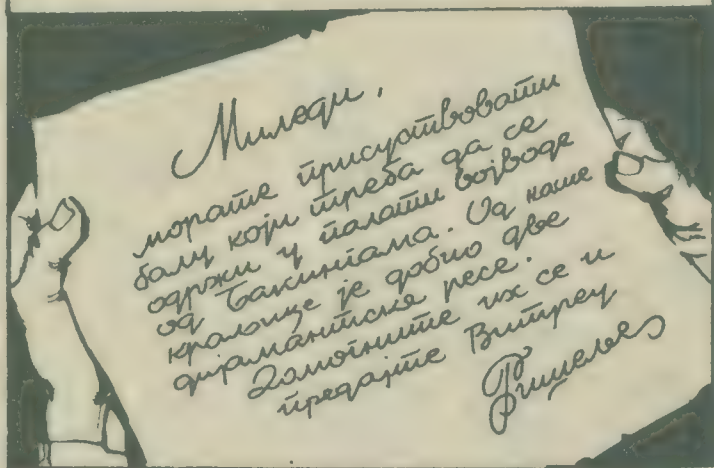 Миледи,
морате присуствовати
балу који треба да се
одржи у палати војводе
од Бакингама. Од наше
краљице је добио две
дијамантске ресе.
Домогните их се и
предајте Витреу
Ришеље